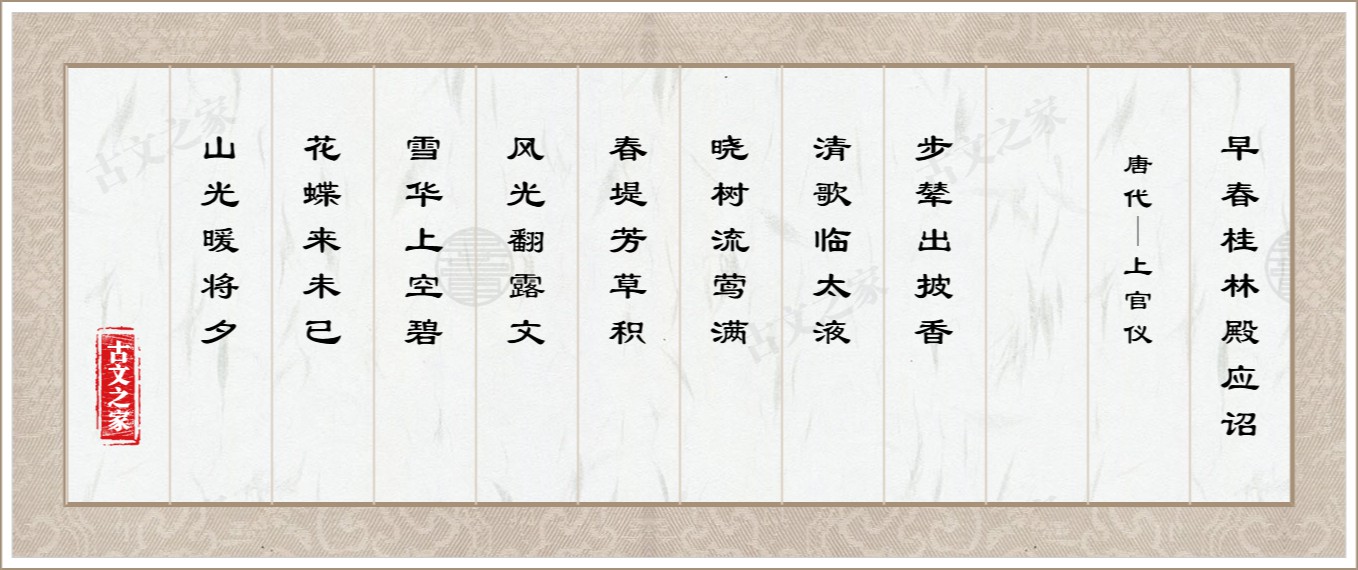 早春桂林殿应诏
唐代—上官仪
步辇出披香
清歌临太液
晓树流莺满
春堤芳草积
风光翻露文
雪华上空碧
花蝶来未已
山光暖将夕
古文之家
古文之家
古文之家
古文之家